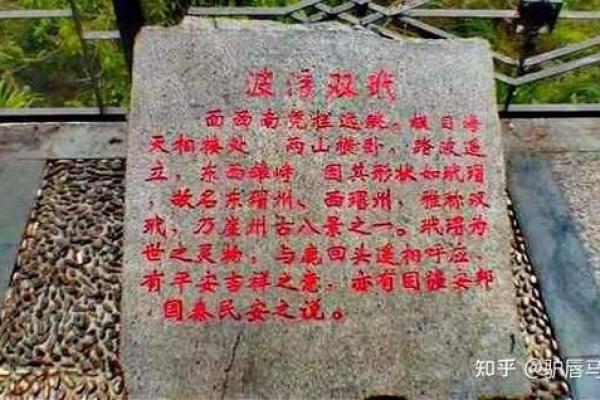 波浮双玳
面西南凭栏远眺。极目海
天相接处 两山横卧，踏波逐
立，东西雄峙 因其形状如玳瑁
，故名东瑁州、西瑁州，雅称双
玳，乃崖州古八景之一。玳瑁为
世之灵物，与鹿回头遥相呼应、
有平安吉祥之意，亦有国谁安邦
国泰民安之说。
知乎 @驴唇马